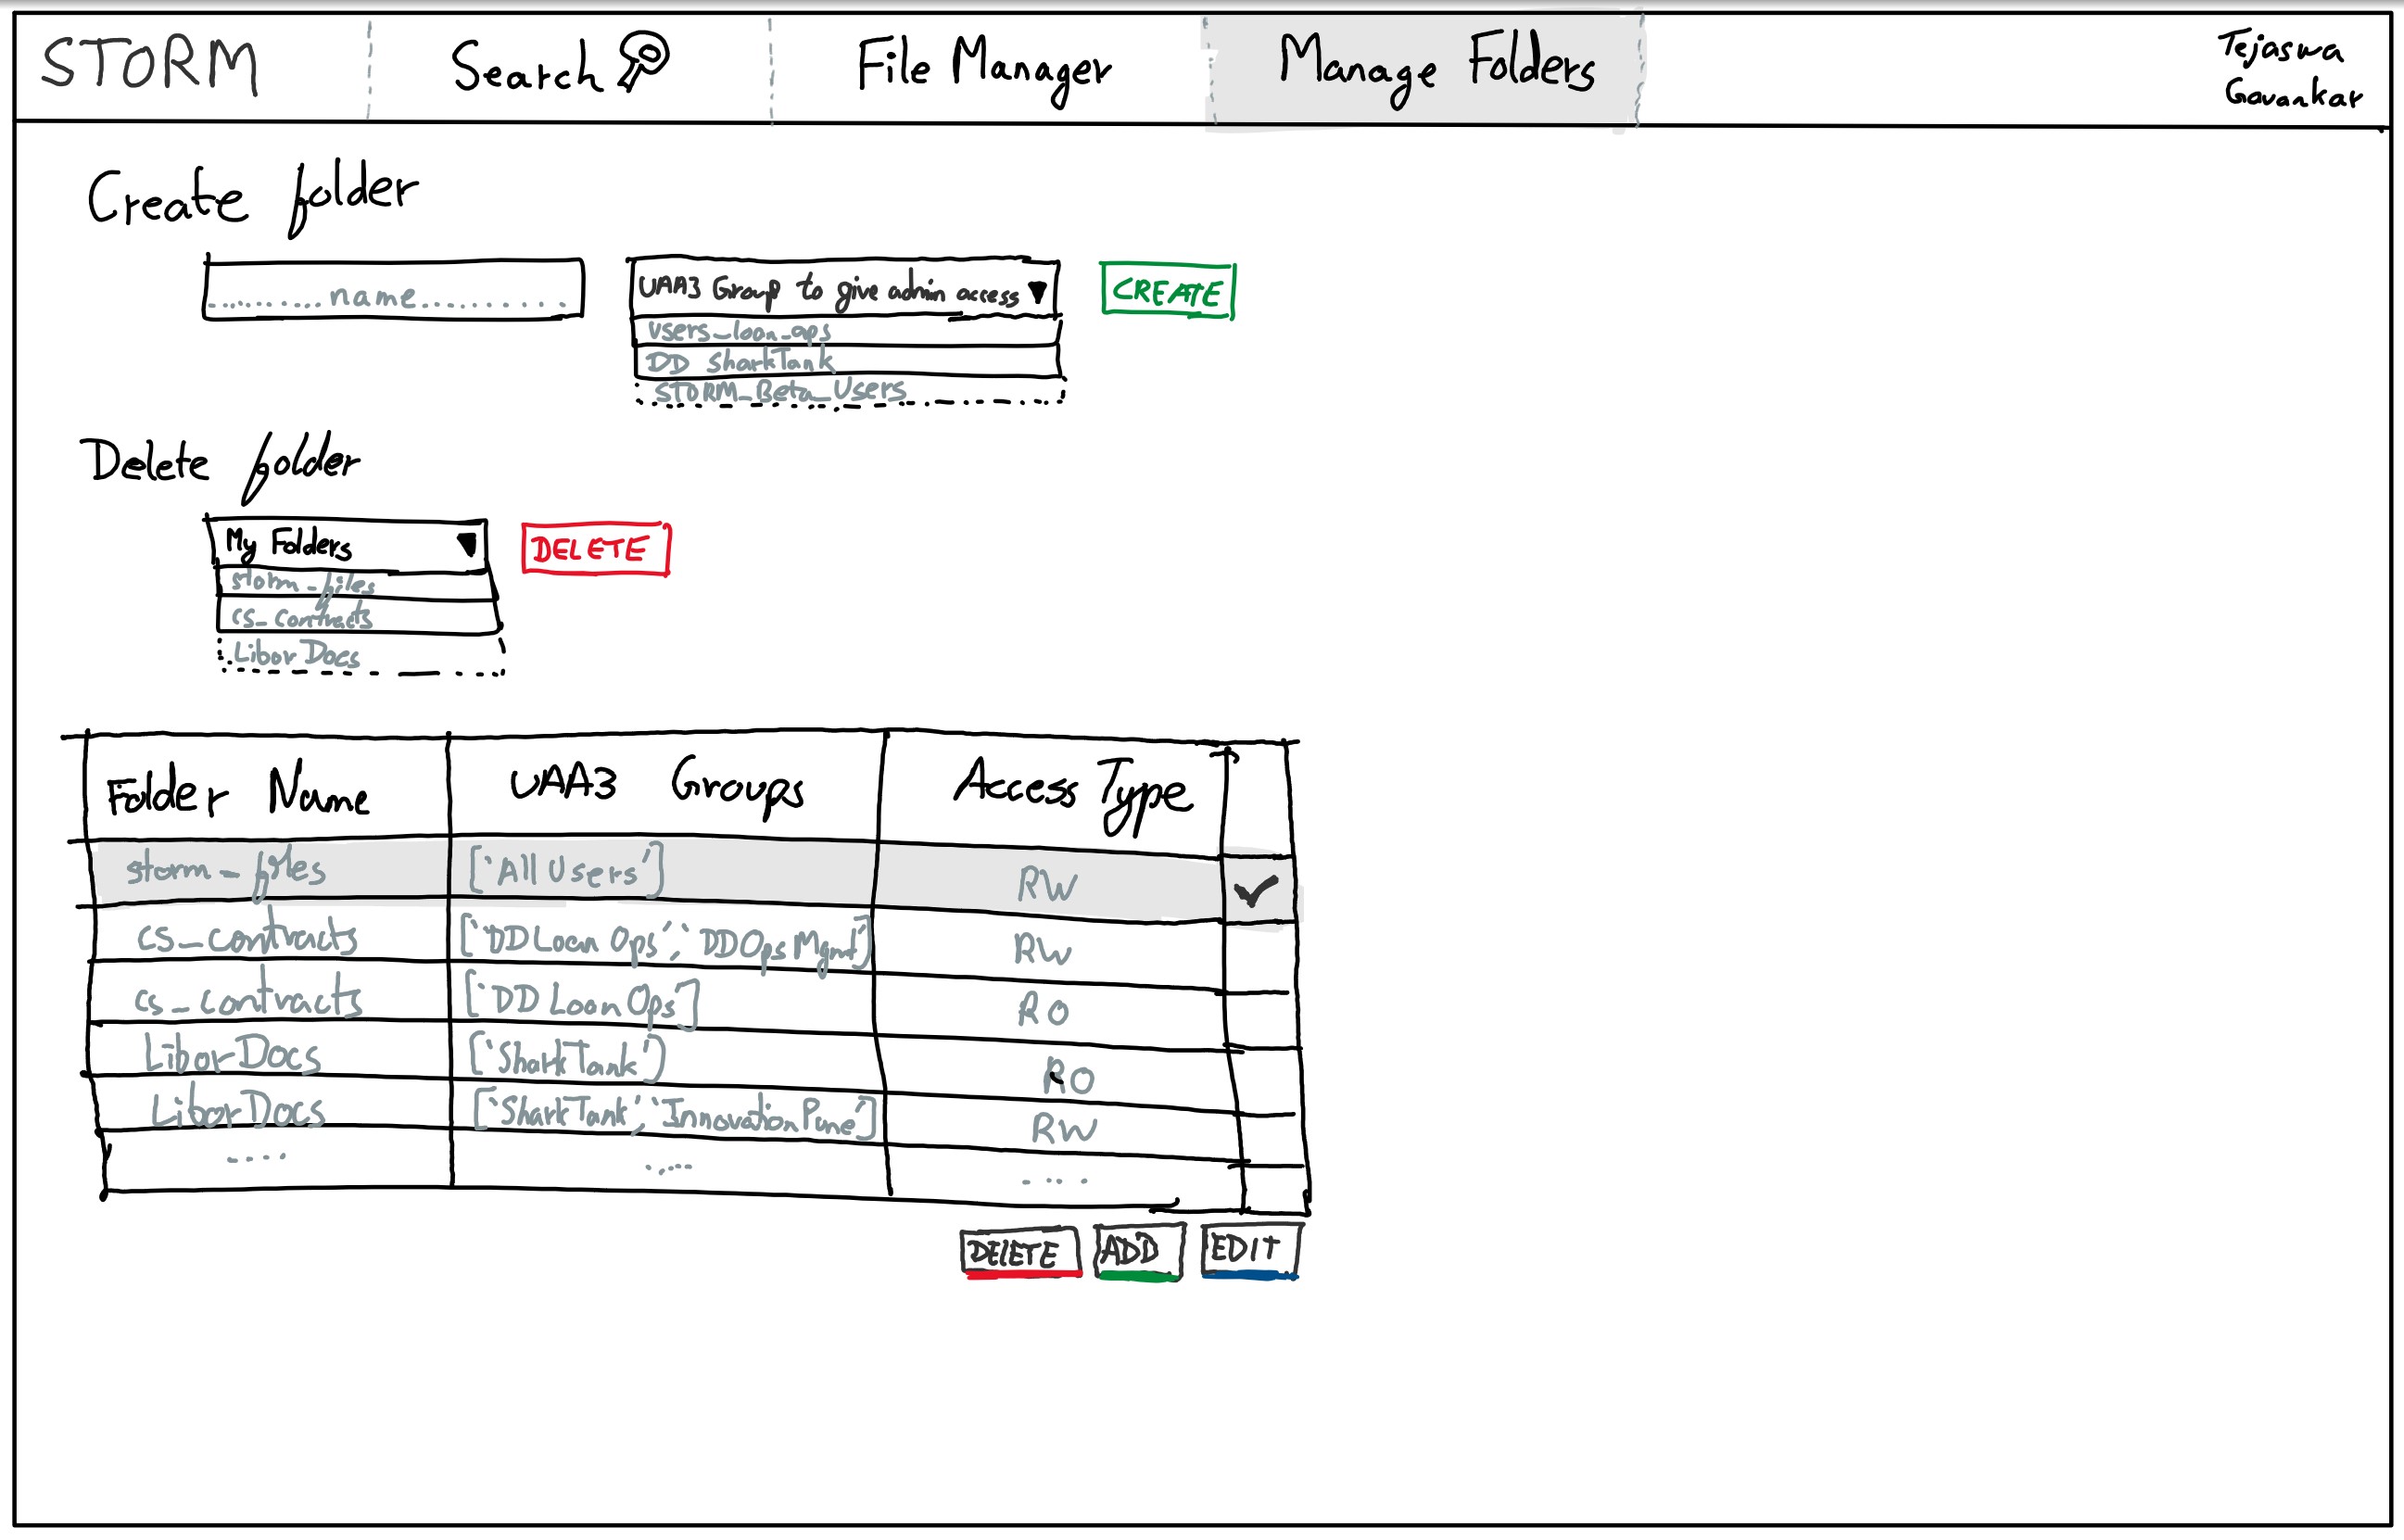 STORM
Search
File Manager
Manage Folders
Tejaswa
Gavankar
Create folder
name
UAA3 Group to give admin access
CREATE
users_loan_ops
DD SharkTank
STORM_Beta_Users
Delete folder
My Folders
DELETE
storm_files
cs_contracts
Libor Docs
Folder Name UAA3 Groups Access Type
storm_files ['All Users'] RW
cs_contracts ['DD Loan Ops','DDOpsMgmt'] RW
cs_contracts ['DD Loan Ops'] RO
Libor Docs ['SharkTank'] RO
Libor Docs ['SharkTank','InnovationPune'] RW
.... .... ....
DELETE ADD EDIT